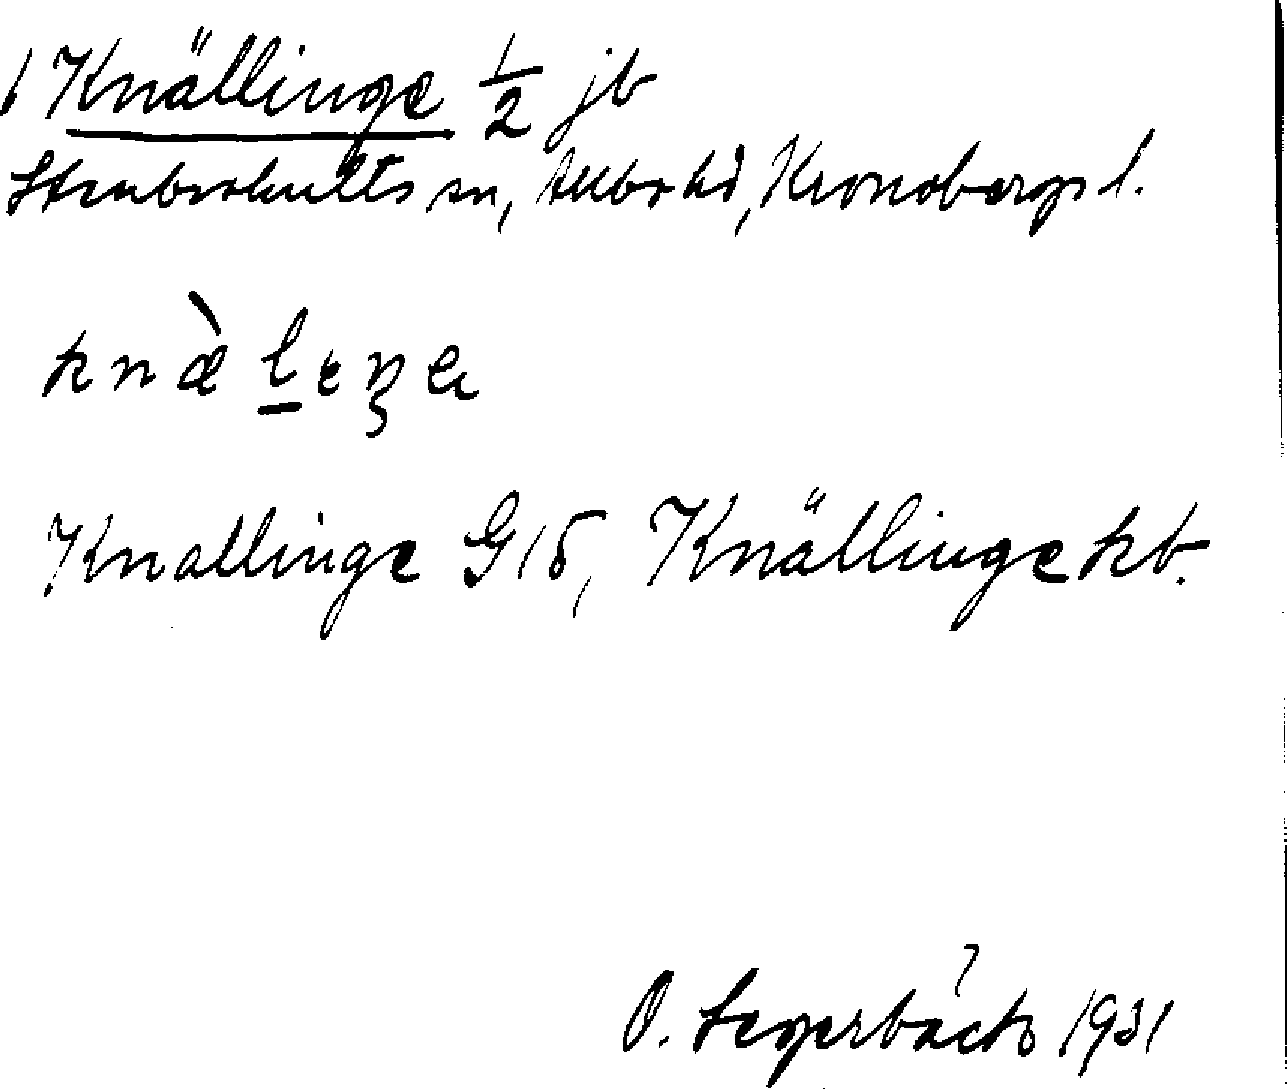 1 Knällinge 1/2 jb
Stenbrohults sn, Allbo hd, Kronobergs l.
knæ̀lıŋa
Knallinge G15, Knällinge kb.
O. Segerbäck 1931